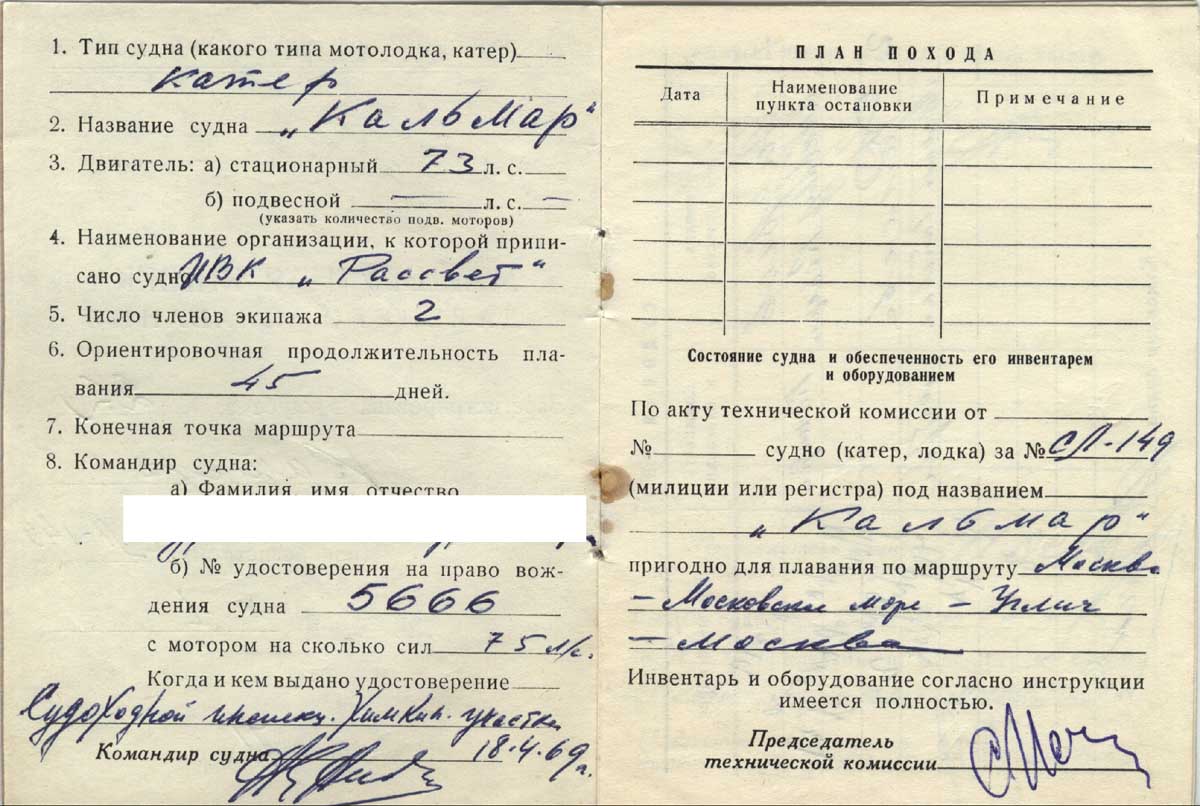 1. Тип судна (какого типа мотолодка, катер)
катер
2. Название судна „Кальмар“
3. Двигатель: а) стационарный 73 л. с.
б) подвесной — л. с. —
(указать количество подв. моторов)
4. Наименование организации, к которой припи-
сано судно ЦВК „Рассвет“
5. Число членов экипажа 2
6. Ориентировочная продолжительность пла-
вания 45 дней.
7. Конечная точка маршрута
8. Командир судна:
а) Фамилия, имя, отчество
б) № удостоверения на право вож-
дения судна 5666
с мотором на сколько сил 75 л/с.
Когда и кем выдано удостоверение
Судоходной инспекц. Химкин. участка
Командир судна 18-4-69 г.
ПЛАН ПОХОДА
Дата
Наименование
пункта остановки
Примечание
Состояние судна и обеспеченность его инвентарем
и оборудованием
По акту технической комиссии от
№ судно (катер, лодка) за № СЛ-149
(милиции или регистра) под названием
„Кальмар“
пригодно для плавания по маршруту Москва
– Московское море – Углич
– Москва
Инвентарь и оборудование согласно инструкции
имеется полностью.
Председатель
технической комиссии